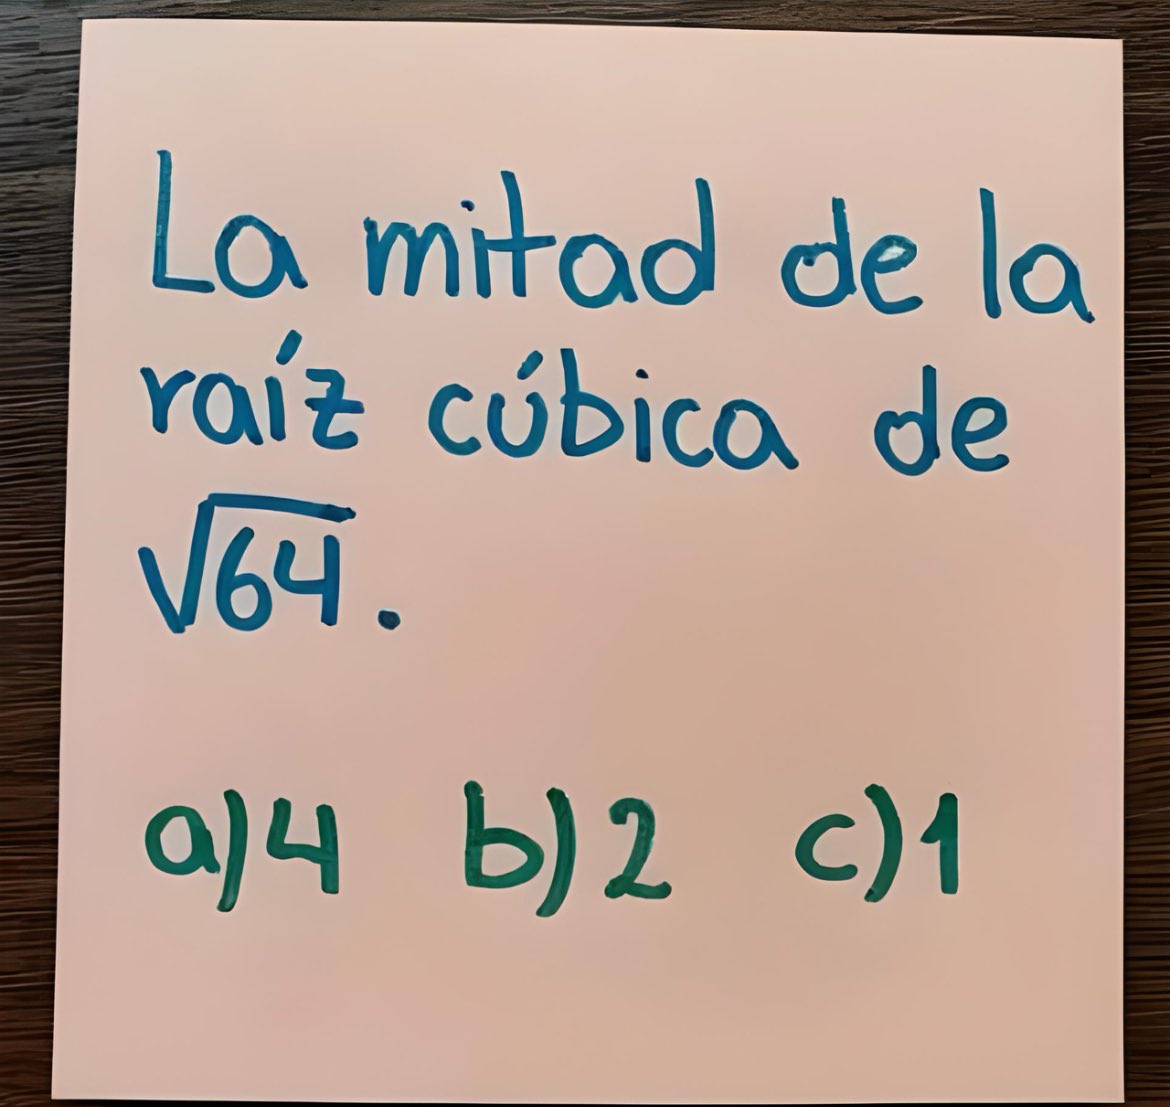 La mitad de la
raíz cúbica de
√64.
a)4 b)2 c)1